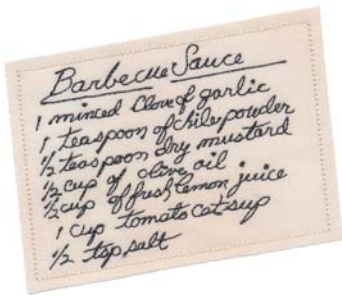 Barbecue Sauce
1 minced clove of garlic
1 teaspoon of chile powder
1/2 teaspoon dry mustard
1/2 cup of olive oil
1/2 cup of fresh lemon juice
1 cup tomato catsup
1/2 tsp salt